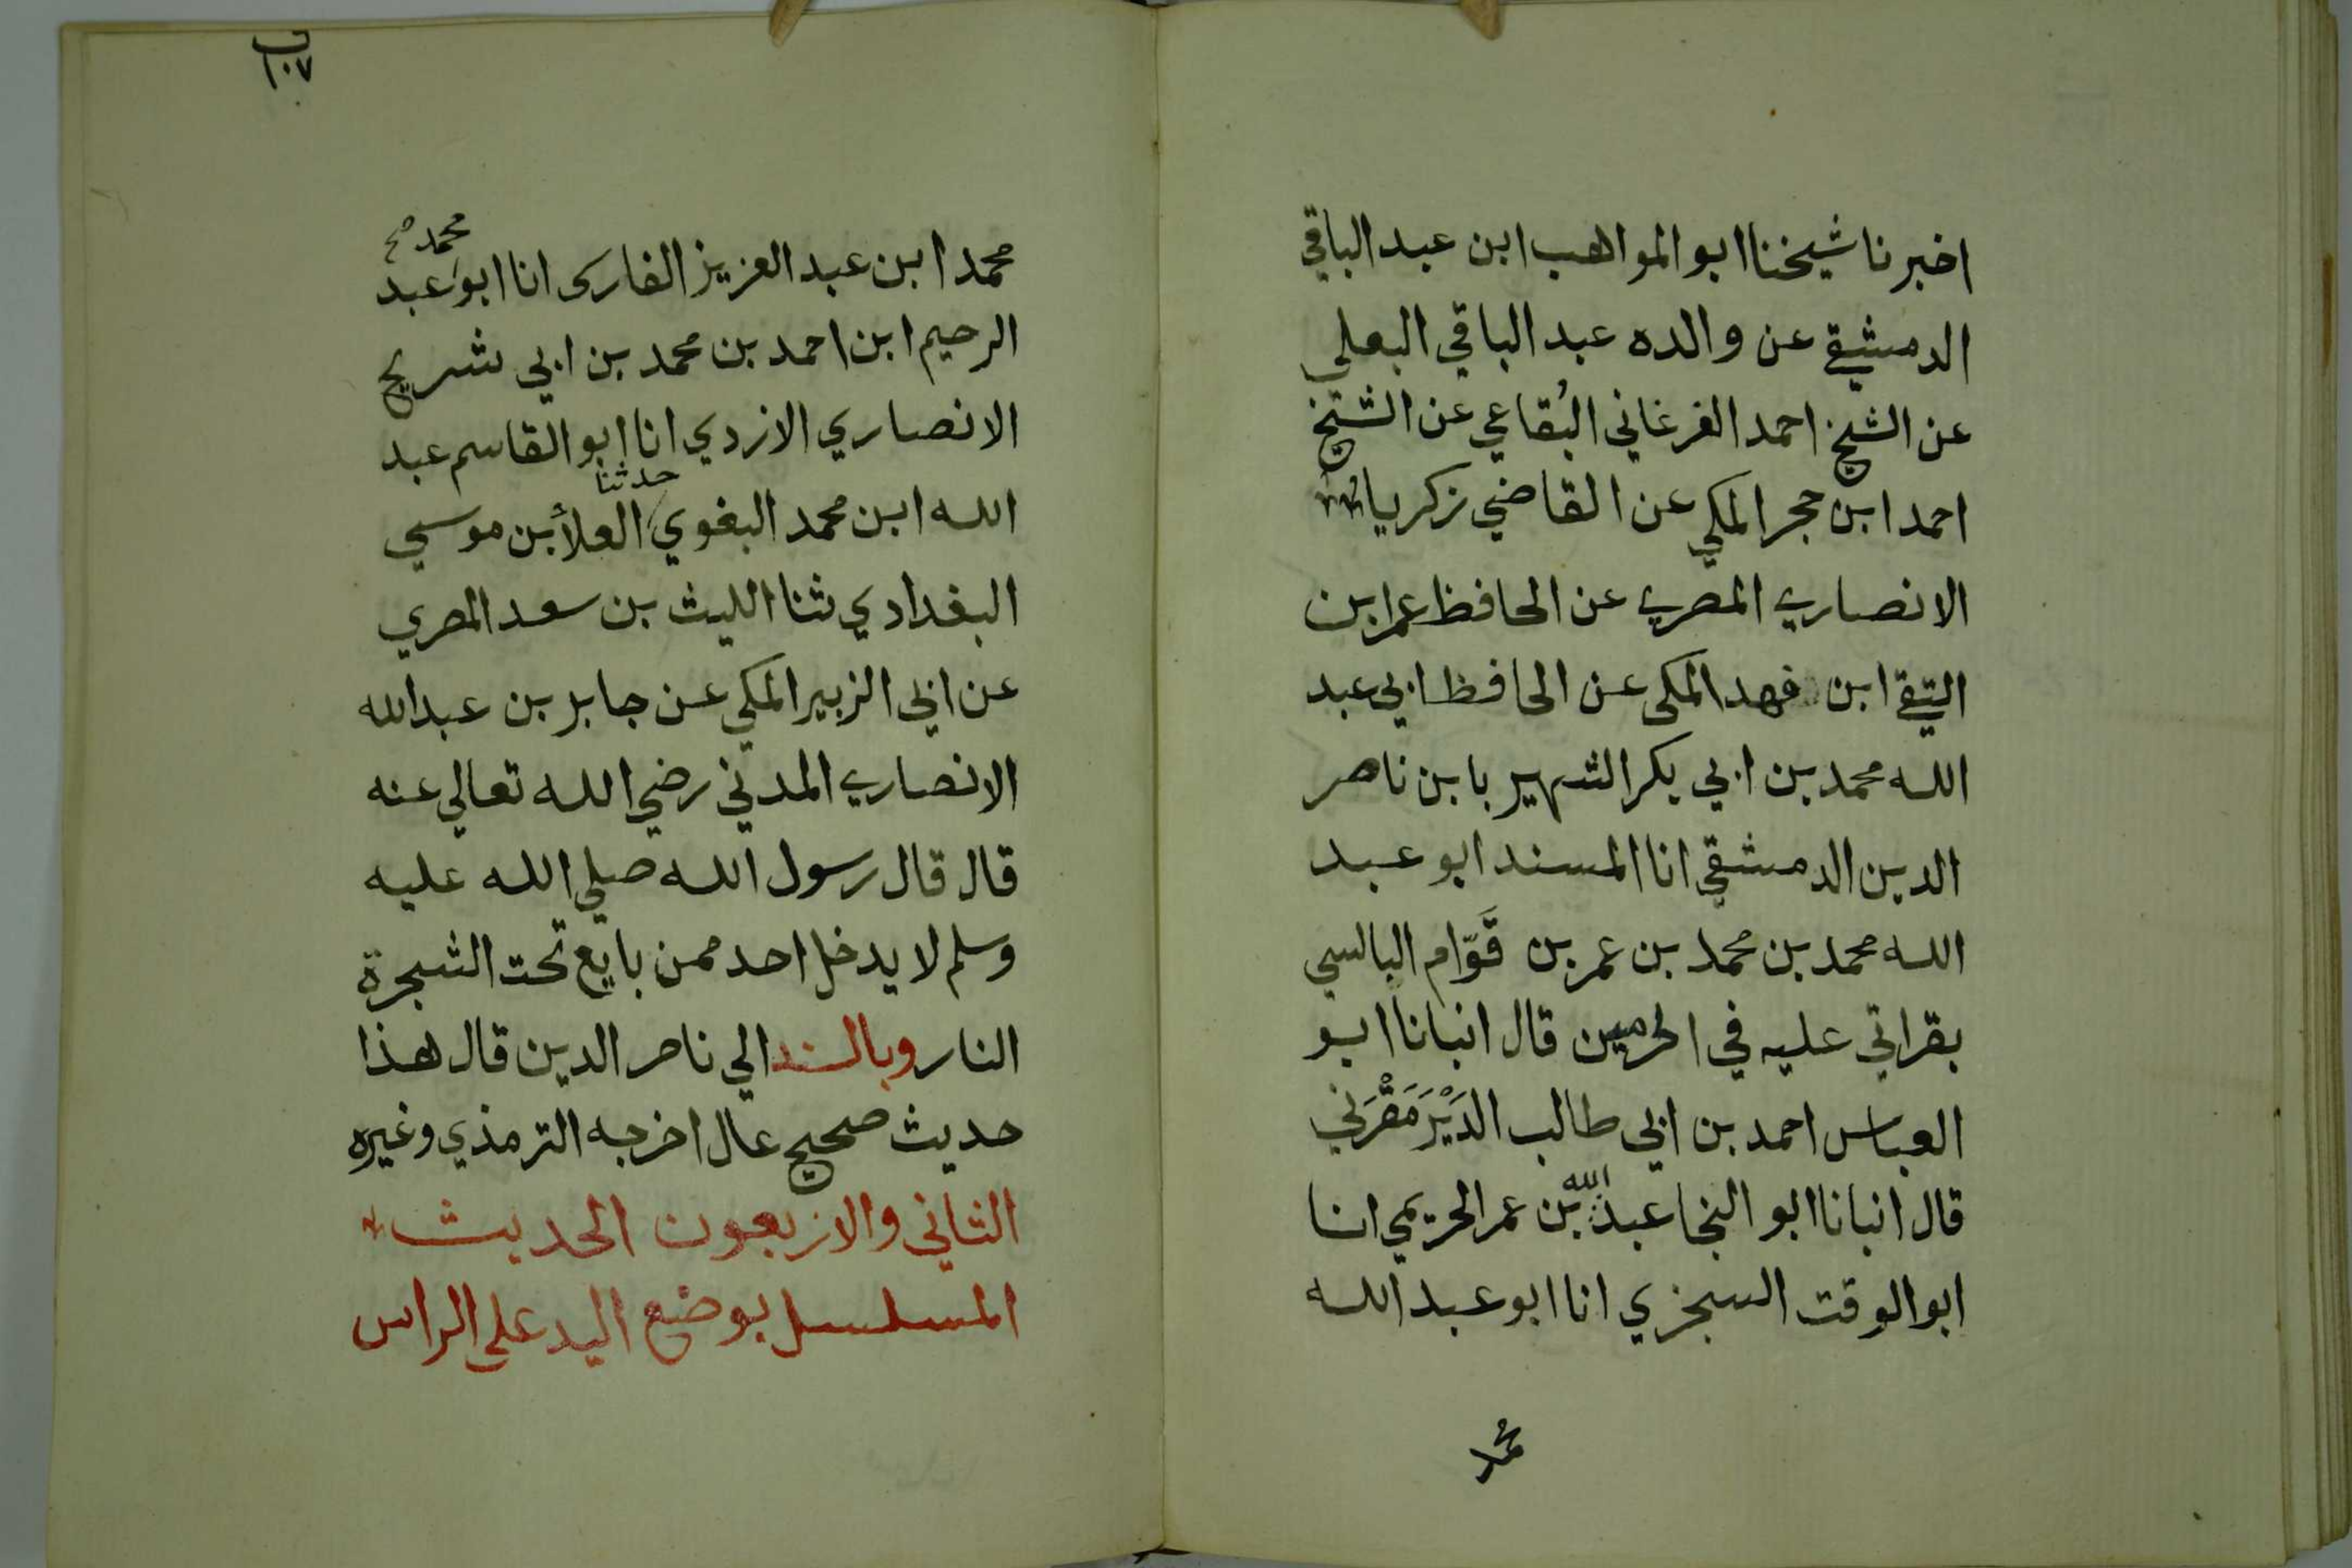 اخبرنا شيخنا ابو المواهب ابن عبد الباقي
الدمشقي عن والده عبد الباقي البعلي
عن الشيخ احمد الفرغاني البُقاعي عن الشيخ
احمد ابن حجر المكي عن القاضي زكريا
الانصاري المصري عن الحافظ عمر ابن
التقي ابن فهد المكي عن الحافظ ابي عبد
الله محمد بن ابي بكر الشهير بابن ناصر
الدين الدمشقي انا المسند ابو عبد
الله محمد بن محمد بن عمر بن قَوّام البالسي
بقراتي عليه في الحرمين قال انبانا ابو
العباس احمد بن ابي طالب الدَيْرَمَقْرَني
قال انبانا ابو النجا عبد الله بن عمر الحريمي انا
ابو الوقت السجزي انا ابو عبد الله
محمد
١٠٧
محمد ابن عبد العزيز الفارسي انا ابو محمد صح عبد
الرحيم ابن احمد بن محمد بن ابي شريح
الانصاري الازدي انا ابو القاسم عبد
الله ابن محمد البغوي حدثنا العلأ بن موسي
البغدادي ثنا الليث بن سعد المصري
عن ابي الزبير المكي عن جابر بن عبد الله
الانصاري المدني رضي الله تعالي عنه
قال قال رسول الله صلي الله عليه
وسلم لا يدخل احد ممن بايع تحت الشجرة
النار وبالسند الي ناصر الدين قال هذا
حديث صحيح عال اخرجه الترمذي وغيره
الثاني والاربعون الحديث
المسلسل بوضع اليد علي الراس